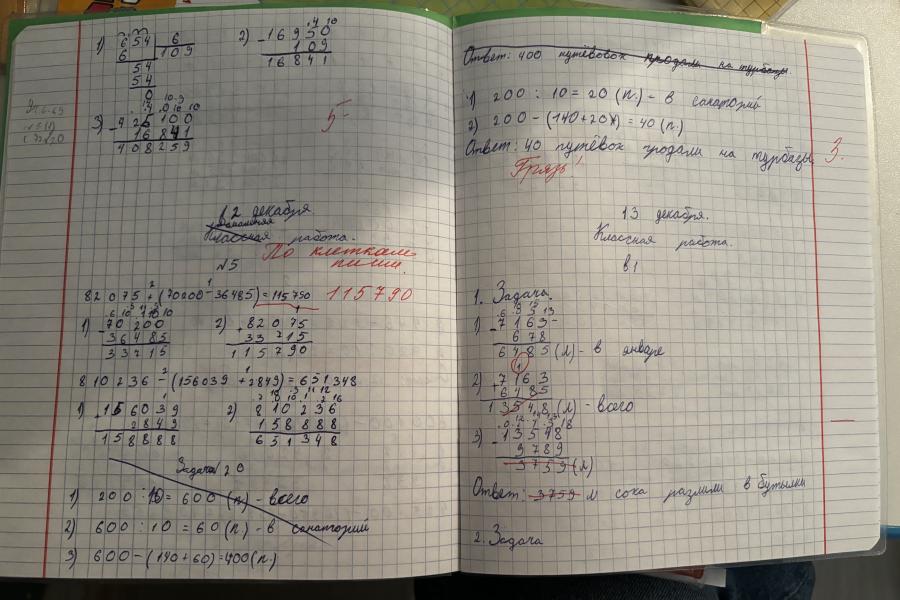 1) 654 | 6
6 | 109
54
54
0
2) - 16950
109
16841
3) - 425100
16841
408259
5-
12 декабря.
Классная работа.
По клеткам
пиши.
№5
82075 + (70200 - 36485) = 115790 115790
1) - 70200
36485
33715
2) + 82075
33715
115790
810236 - (156039 + 2849) = 651348
1) 156039
2849
158888
2) 810236
158888
651348
Задача 20
1) 200 · 10 = 600 (п) - всего
2) 600 : 10 = 60 (п.) - в санаторий
3) 600 - (140 + 60) = 400 (п.)
Ответ: 400 путёвок продали на турбазы.
1) 200 : 10 = 20 (п.) - в санаторий
2) 200 - (140 + 20) = 40 (п.)
Ответ: 40 путёвок продали на турбазы. 3.
Грязь!
13 декабря.
Классная работа.
в1
1. Задача.
1) - 7163
678
6485 (л) - в январе
2) + 7163
6485
13548 (л) - всего
3) - 13548
9789
3759 (л)
Ответ: 3759 л сока разлили в бутылки
2. Задача